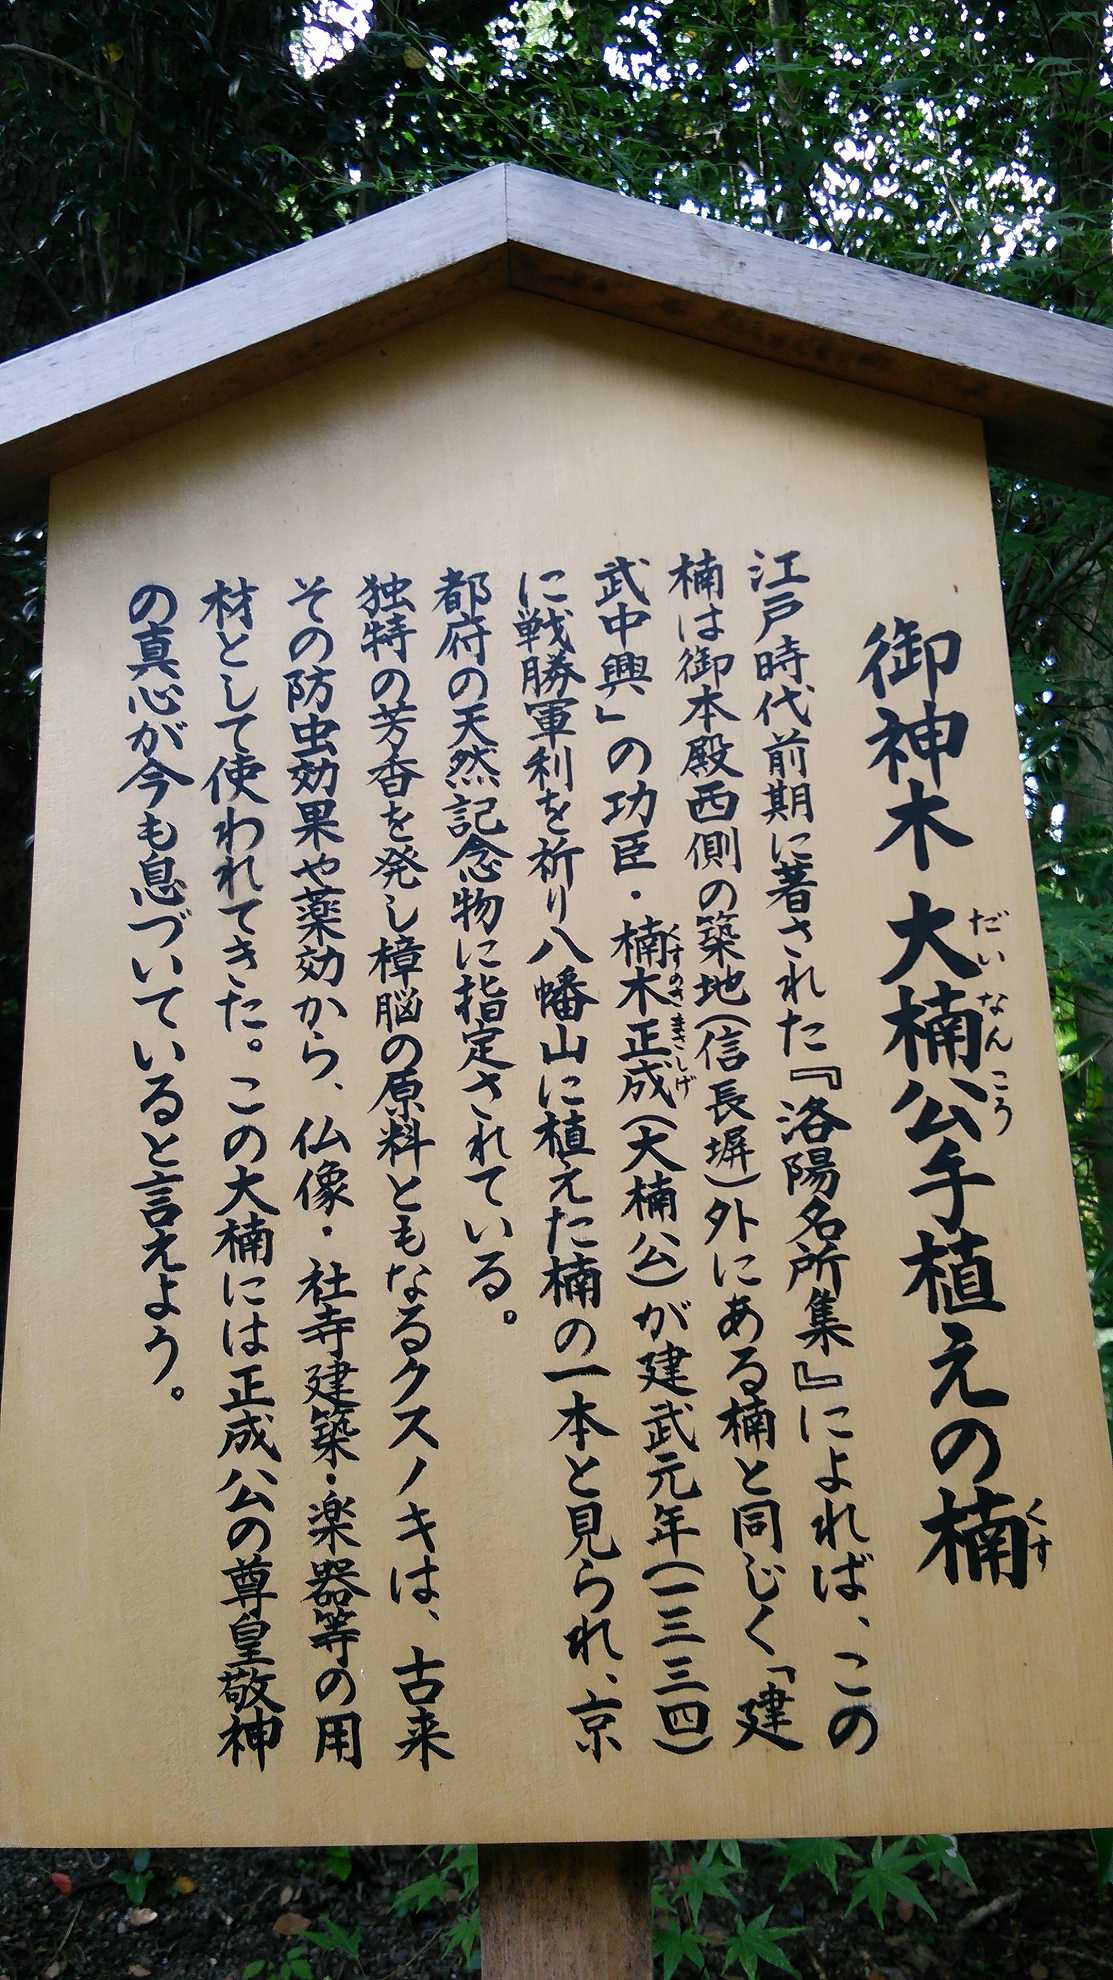 御神木 大楠公手植えの楠
だいなんこう
くす
江戸時代前期に著された『洛陽名所集』によれば、この
楠は御本殿西側の築地(信長塀)外にある楠と同じく「建
武中興」の功臣・楠木正成(大楠公)が建武元年(一三三四)
くすのきまさしげ
に戦勝軍利を祈り八幡山に植えた楠の一本と見られ、京
都府の天然記念物に指定されている。
独特の芳香を発し樟脳の原料ともなるクスノキは、古来
その防虫効果や薬効から、仏像・社寺建築・楽器等の用
材として使われてきた。この大楠には正成公の尊皇敬神
の真心が今も息づいていると言えよう。